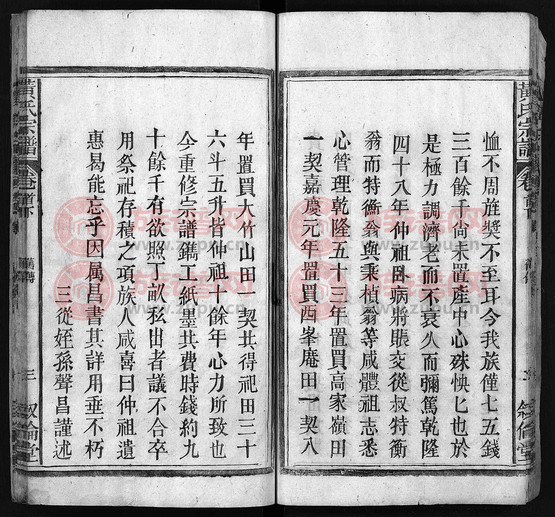 黃氏宗譜
卷首下
敘倫堂
恤不周旌獎不至耳今我族僅七五錢
三百餘千尚未置產中心殊怏匕也於
是極力調濟老而不衰久而彌篤乾隆
四十八年仲祖卧病將賬交從叔特衡
翁而特衡翁與秉楨翁等咸體祖志悉
心管理乾隆五十三年置買高家嶺田
一契嘉慶元年置買西峯庵田一契八
年置買大竹山田一契共得祀田三十
六斗五升皆仲祖十餘年心力所致也
今重修宗譜鐫工紙墨共費時錢約九
十餘千有欲照丁畝敘出者議不合卒
用祭祀存積之項族人咸喜曰仲祖遺
惠曷能忘乎因属昌書其詳用垂不朽
三從姪孫聲昌謹述
黃氏宗譜
卷首下
三
敘倫堂